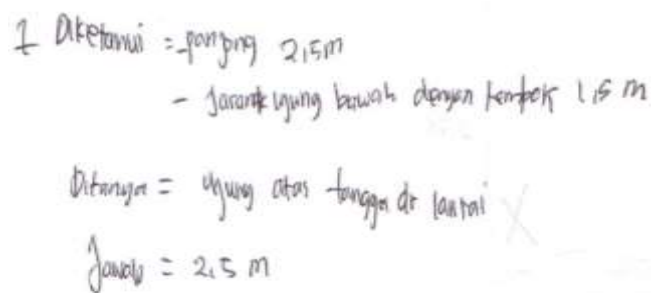 1 Diketahui = - panjang 2,5 m
- Jarak ujung bawah dengan tembok 1,5 m
Ditanya = ujung atas tangga dr lantai
Jawab = 2,5 m